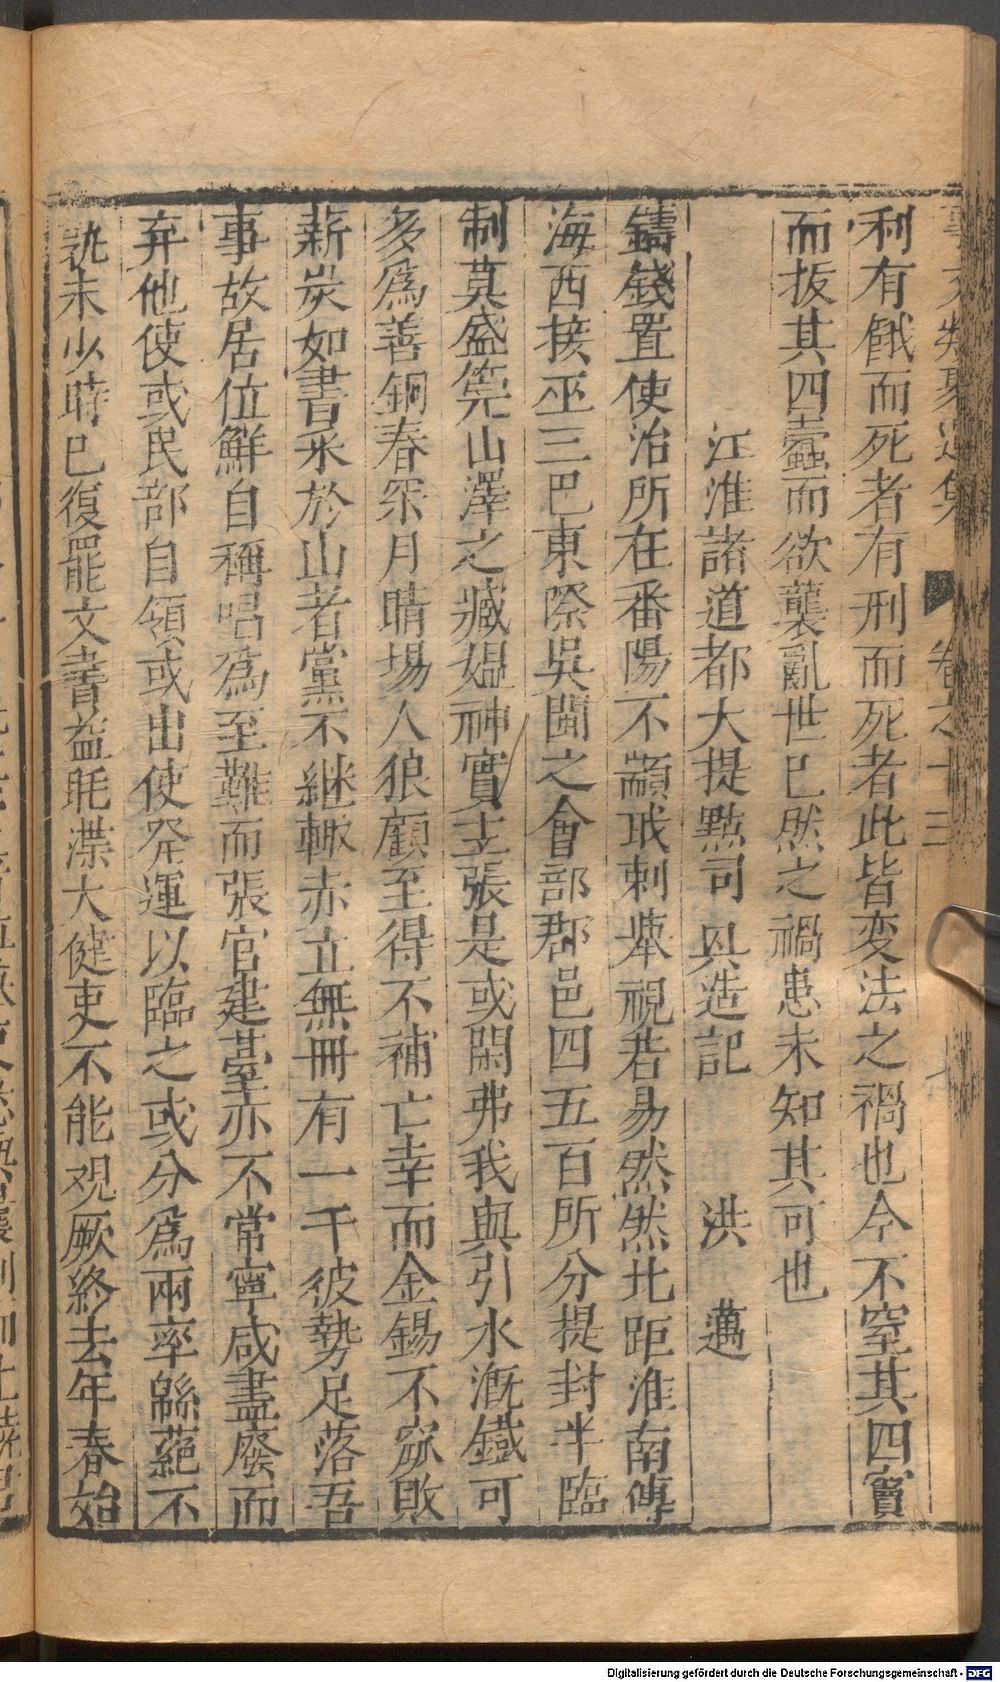 利有餓而死者有刑而死者此皆変法之禍也今不窒其四竇
而拔其四蠹而欲襲亂世已然之禍患未知其可也
江淮諸道都大提點司興造記 洪 邁
鑄錢置使治所在番陽不顓戢刺舉視若易然然北距淮南傳
海西接巫三巴東際吳閩之會部郡邑四五百所分提封半臨
制莫盛筦山澤之藏媪神實主張是或閟弗我與引水漑鐵可
多爲善銅春罙月晴場人狼顧至得不補亡幸而金錫不窳敗
薪炭如書釆於山者黨不継輙赤立無冊有一千彼勢足落吾
事故居位鮮自稱唱爲至難而張官建䑓亦不常寧咸盡廢而
弃他使或民部自領或出使発運以臨之或分爲兩率緜蕝不
就未少時已復罷文書益眊渫大健吏不能观厥終去年春始
卷之十三
Digitalisierung gefördert durch die Deutsche Forschungsgemeinschaft - DFG